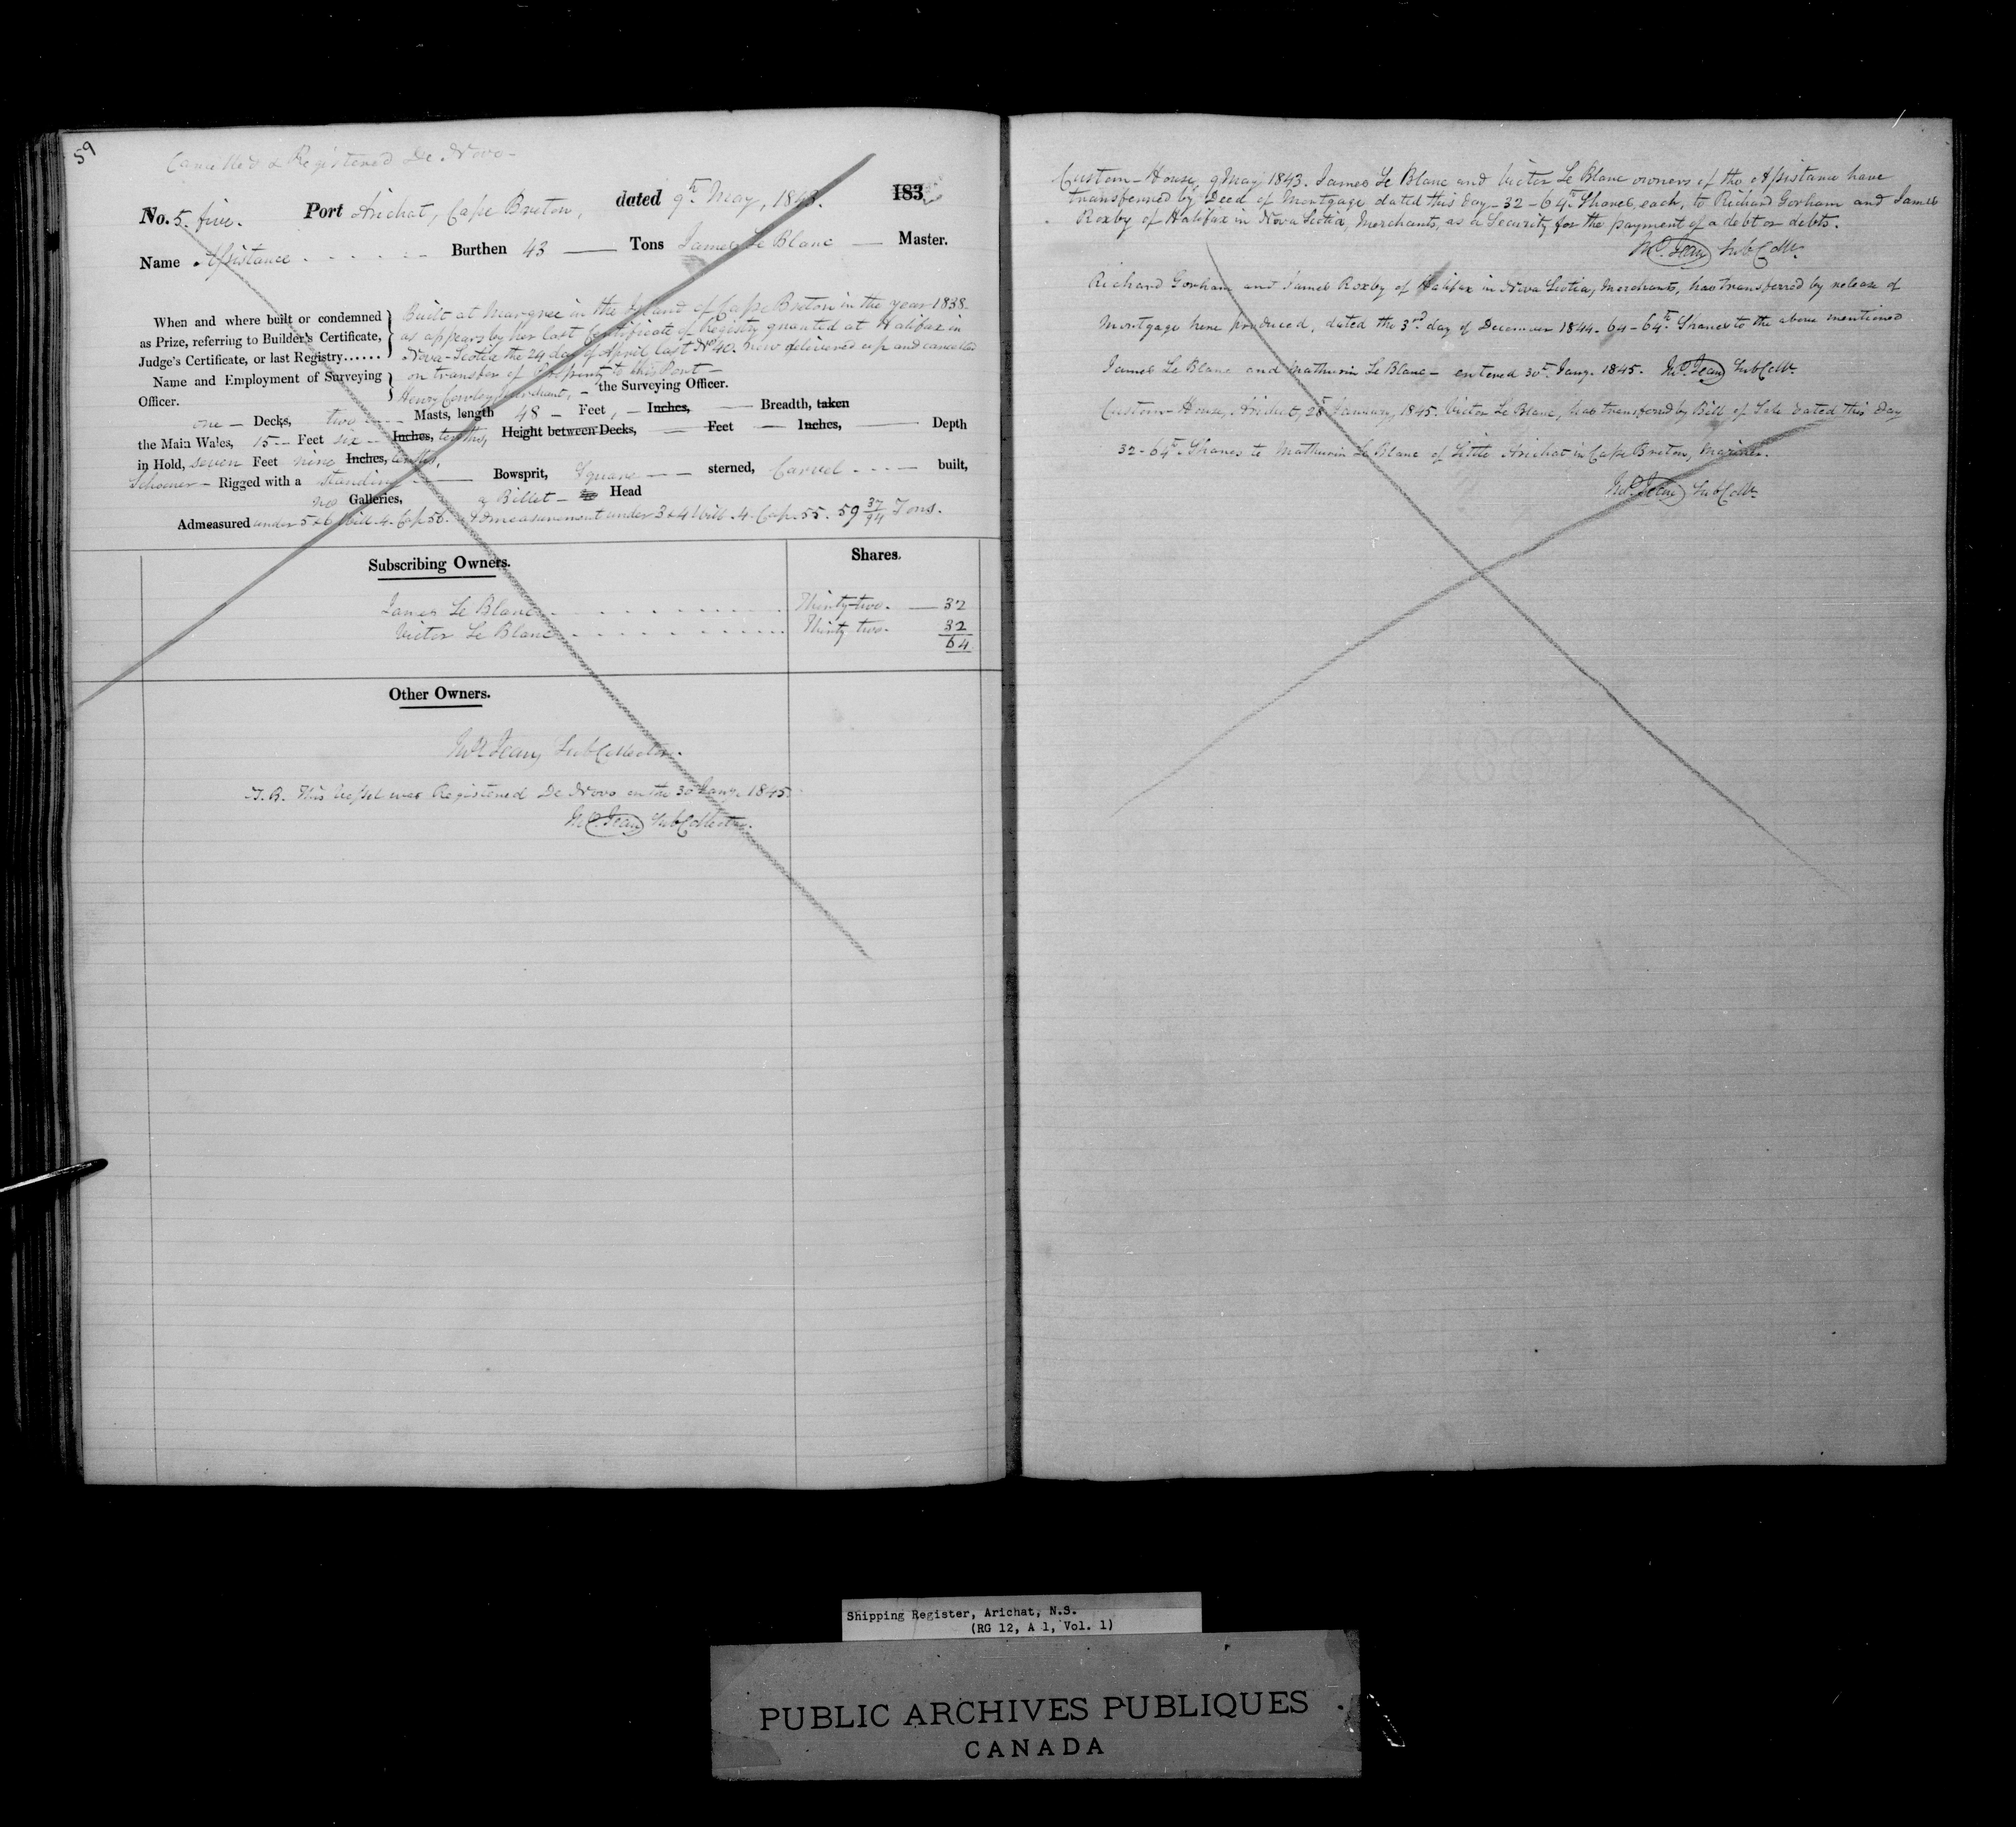 59
Cancelled & Registered De Novo-
No. 5. five. Port Arichat, Cape Breton, dated 9th May, 1843. 183
Name Assistance Burthen 43 Tons James Le Blanc Master.
When and where built or condemned as Prize, referring to Builder's Certificate, Judge's Certificate, or last Registry......
Built at Margree in the Island of Cape Breton in the year 1838.
as appears by her last Certificate of Registry granted at Halifax in
Nova-Scotia the 24 day of April last No 40. now delivered up and cancelled
on transfer of Property to this Port-
Name and Employment of Surveying Officer.
Henry Cowley, Merchant, - the Surveying Officer.
one - Decks, two Masts, length 48 - Feet, - Inches, Breadth, taken
the Main Wales, 15 - Feet six - Inches, tenths, Height between Decks, Feet - Inches, Depth
in Hold, seven Feet nine Inches, tenths,
Schooner - Rigged with a standing Bowsprit, Square sterned, Carvel built,
no Galleries, a Billet - Head
Admeasured under 5 & 6 Will. 4. Cap. 56. Admeasurement under 3 & 4 Will. 4. Cap. 55. 59 37/94 Tons.
Subscribing Owners. Shares.
James Le Blanc Thirty-two. 32
Victor Le Blanc Thirty-two. 32
64
Other Owners.
Sub Collector.
N.B. This Vessel was Registered De Novo on the 30 Jany. 1845.
Sub Collector.
Custom-House, 9 May 1843. James Le Blanc and Victor Le Blanc owners of the Assistance have
transferred by Deed of Mortgage dated this day - 32-64th Shares, each, to Richard Gorham and James
Roxby of Halifax in Nova Scotia, Merchants, as a Security for the payment of a debt or debts.
Sub Collr.
Richard Gorham and James Roxby of Halifax in Nova Scotia, Merchants, has transferred by release of
Mortgage here produced, dated the 3rd day of December 1844. 64-64th Shares to the above mentioned
James Le Blanc and Mathurin Le Blanc - entered 30th Jany. 1845. Sub Collr.
Custom-House, Arichat, 28th January, 1845. Victor Le Blanc, has transferred by Bill of Sale dated this day
32-64th Shares to Mathurin Le Blanc of Little Arichat in Cape Breton, Mariner.
Sub Collr.
Shipping Register, Arichat, N.S.
(RG 12, A 1, Vol. 1)
PUBLIC ARCHIVES PUBLIQUES
CANADA